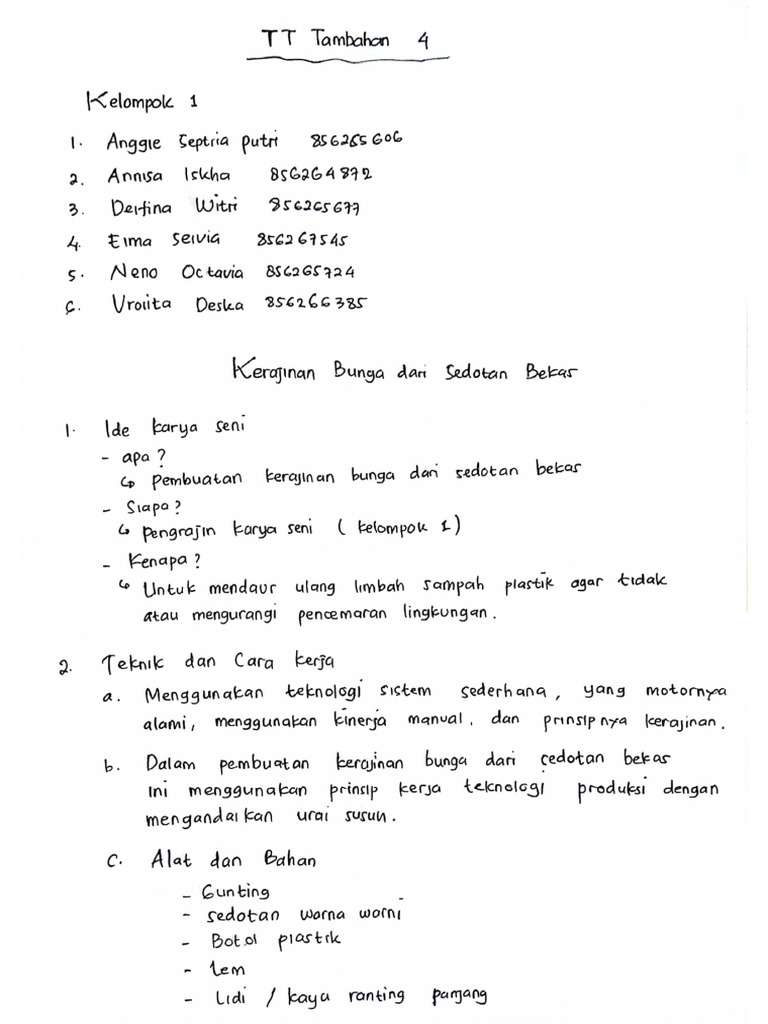 TT Tambahan 4
Kelompok 1
1. Anggie Septria putri 856265606
2. Annisa Iskha 856264872
3. Delfina Witri 856265677
4. Elma Selvia 856267545
5. Neno Octavia 856265724
6. Vrolita Deska 856266385
Kerajinan Bunga dari Sedotan Bekas
1. Ide karya seni
- apa?
↳ Pembuatan kerajinan bunga dari sedotan bekas
- Siapa?
↳ Pengrajin karya seni ( kelompok 1 )
- Kenapa?
↳ Untuk mendaur ulang limbah sampah plastik agar tidak
atau mengurangi pencemaran lingkungan.
2. Teknik dan Cara kerja
a. Menggunakan teknologi sistem sederhana, yang motornya
alami, menggunakan kinerja manual, dan prinsipnya kerajinan.
b. Dalam pembuatan kerajinan bunga dari sedotan bekas
ini menggunakan prinsip kerja teknologi produksi dengan
mengandalkan urai susun.
C. Alat dan Bahan
- Gunting
- sedotan warna warni
- Botol plastik
- lem
- Lidi / kayu ranting panjang